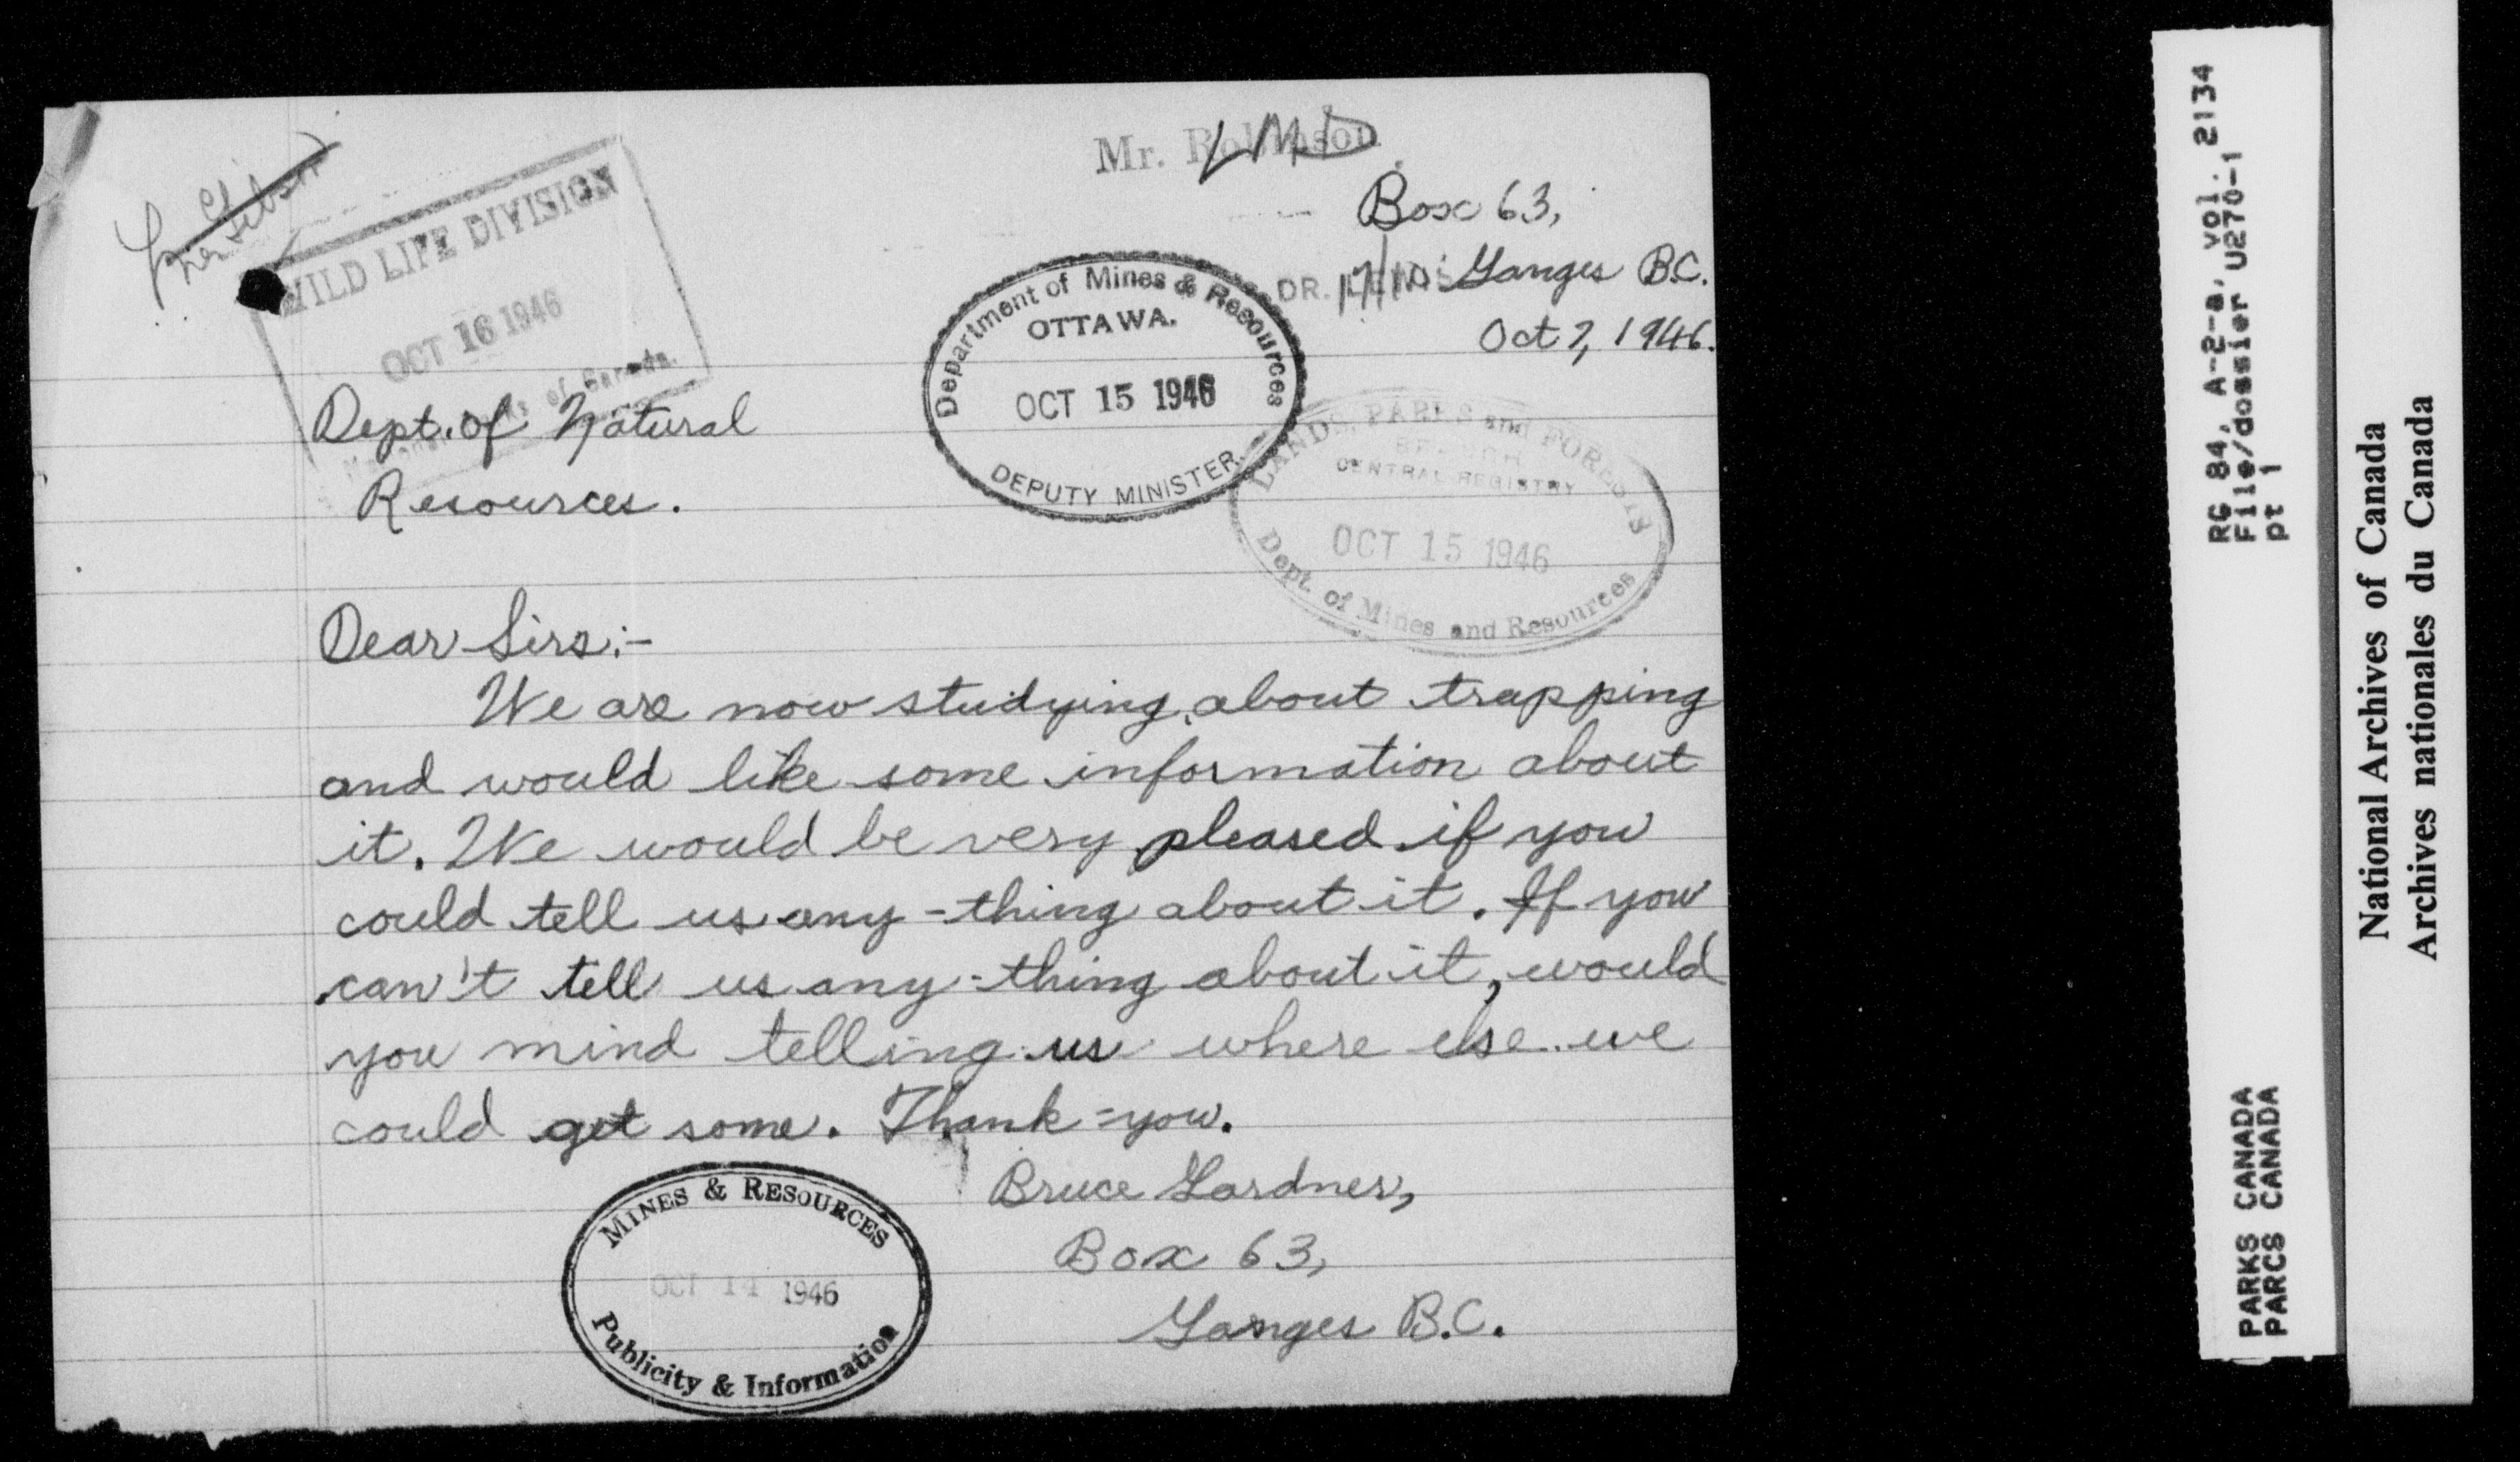 Mr. Robinson
LMD
Box 63,
Ganges B.C.
Oct 7, 1946.
WILD LIFE DIVISION
OCT 16 1946
National Parks of Canada.
Department of Mines & Resources
OTTAWA.
OCT 15 1946
DEPUTY MINISTER
DR.
LANDS, PARKS and FORESTS
BRANCH
CENTRAL REGISTRY
OCT 15 1946
Dept. of Mines and Resources
Dept. of Natural
Resources.
Dear Sirs:-
We are now studying about trapping
and would like some information about
it. We would be very pleased if you
could tell us any-thing about it. If you
can't tell us any-thing about it, would
you mind telling us where else we
could get some. Thank=you.
Bruce Gardner,
Box 63,
Ganges B.C.
MINES & RESOURCES
OCT 14 1946
Publicity & Information
RG 84, A-2-a, vol. 2134
File/dossier U270-1
pt 1
PARKS CANADA
PARCS CANADA
National Archives of Canada
Archives nationales du Canada